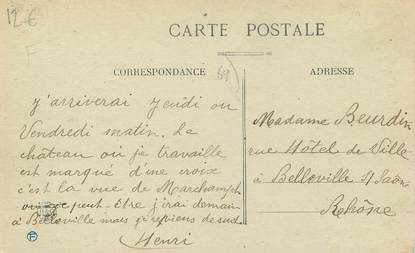 12 €
F
CARTE POSTALE
69
CORRESPONDANCE
ADRESSE
J'arriverai Jeudi ou
Vendredi matin. Le
château où je travaille
est marqué d'une croix
c'est la vue de Marchampt
peut-être j'irai demain
à Belleville mais je
Henri
Madame Beurdin
rue Hôtel de Ville
à Belleville s/ Saône
Rhône